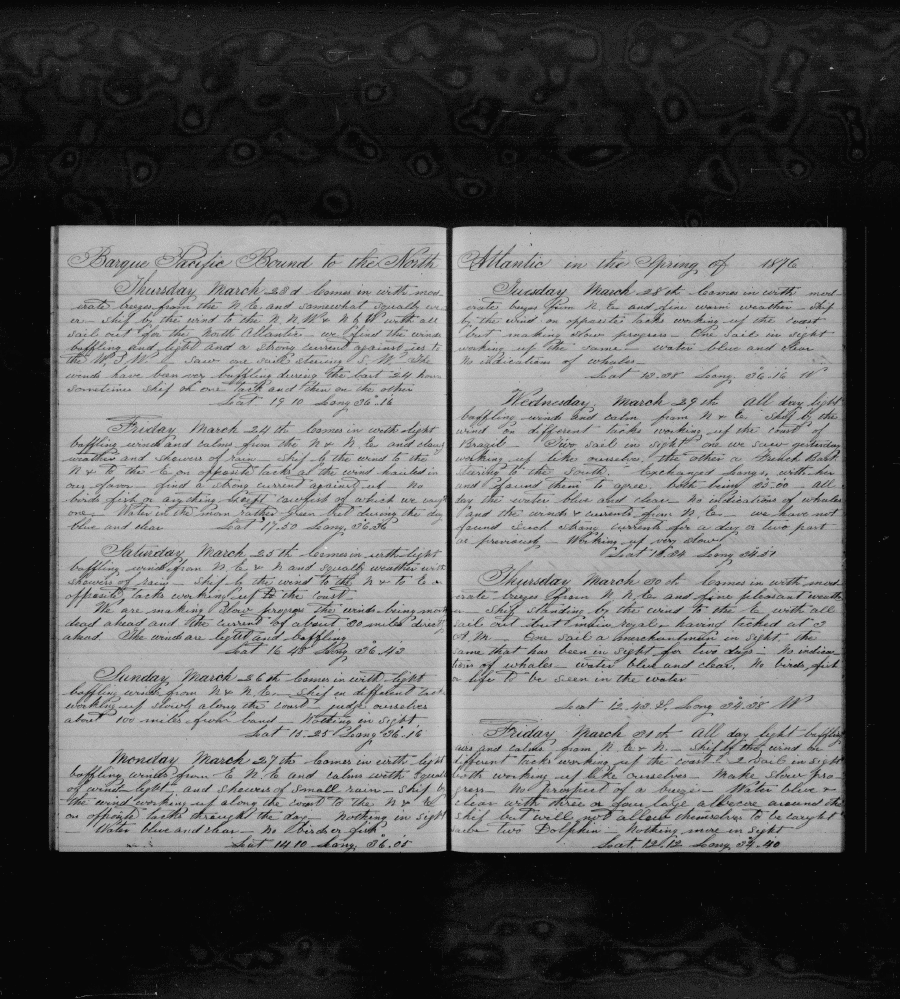 Barque Pacific Bound to the North
Thursday March 23d Comes in with mod-
erate breezes from the N. E. and somewhat squally weath
er. Ship by the wind to the N. N. W & N b W with all
sail out for the North Atlantic. we find the winds
baffling and light and a strong current against us to
the W. S. W. Saw one sail steering S. W. The
winds have been very baffling during the last 24 hours
sometimes ship on one tack and then on the other
Lat 19.10 Long 36.16
Friday March 24th Comes in with light
baffling winds and calms from the N & N. E. and cloudy
weather and showers of rain — ship by the wind to the
N & to the E on opposite tacks as the wind hauled in
our favor — find a strong current against us. No
birds fish or anything except of which we caught
one. Water in the morn rather green but during the day
blue and clear Lat 17.50 Long. 36.36
Saturday March 25th Comes in with light
baffling winds from N. E. & N and squally weather with
showers of rain — ship by the wind to the N & to E on
opposite tacks working up to the coast
We are making slow progress the winds being most
dead ahead and the current of about 30 miles direct
ahead. The winds are light and baffling
Lat 16.48 Long 36.43
Sunday March 26th Comes in with light
baffling winds from N & N. E. — ship on different tacks
working up slowly along the coast judge ourselves
about 100 miles from land — Nothing in sight
Lat 15.25 Long 36.16
Monday March 27th Comes in with light
baffling winds from E N. E and calms with squalls
of wind light and showers of small rain — ship by
the wind working up along the coast to the N & E
on opposite tacks through the day — Nothing in sight
Water blue and clear — No birds or fish
Lat 14.10 Long 36.05
Atlantic in the Spring of 1876
Tuesday March 28th Comes in with mod-
erate breezes from N. E. and fine warm weather. Ship
by the wind on opposite tacks working up the coast
but making slow progress — One sail in sight
working up the same — water blue and clear
No indications of whales
Lat 13.38 Long. 36.16 W
Wednesday March 29th All day light
baffling winds and calm from N & E. Ship by the
wind on different tacks working up the coast of
Brazil — Two sail in sight one we saw yesterday
working up like ourselves, the other a French Bark
steering to the South. Exchanged Longs. with her
and found them to agree. both being 35.00 — All
day the water blue and clear — No indications of whales
and the winds & currents from N. E. — we have not
found such strong currents for a day or two past
as previously — Working up very slow
Lat 13.24 Long 34.51
Thursday March 30th Comes in with mod-
erate breezes from N. N. E and fine pleasant weath
er — Ship standing by the wind to the E. with all
sail out but main royal, having tacked at 3
A. M. — One sail a merchantman in sight the
same that has been in sight for two days — No indica-
tions of whales — water blue and clear, No birds, fish
or life to be seen in the water
Lat 12.43 S Long 34.38 W
Friday March 31st All day light baffling
airs and calms from N. E & N. — Ship by the wind on
different tacks working up the coast — 2 sail in sight
both working up like ourselves — Make slow pro-
gress — No prospect of a breeze — Water blue &
clear with three or four large albicore around the
ship but will not allow themselves to be caught
saw two Dolphin — Nothing more in sight
Lat 12.12 Long 34.40